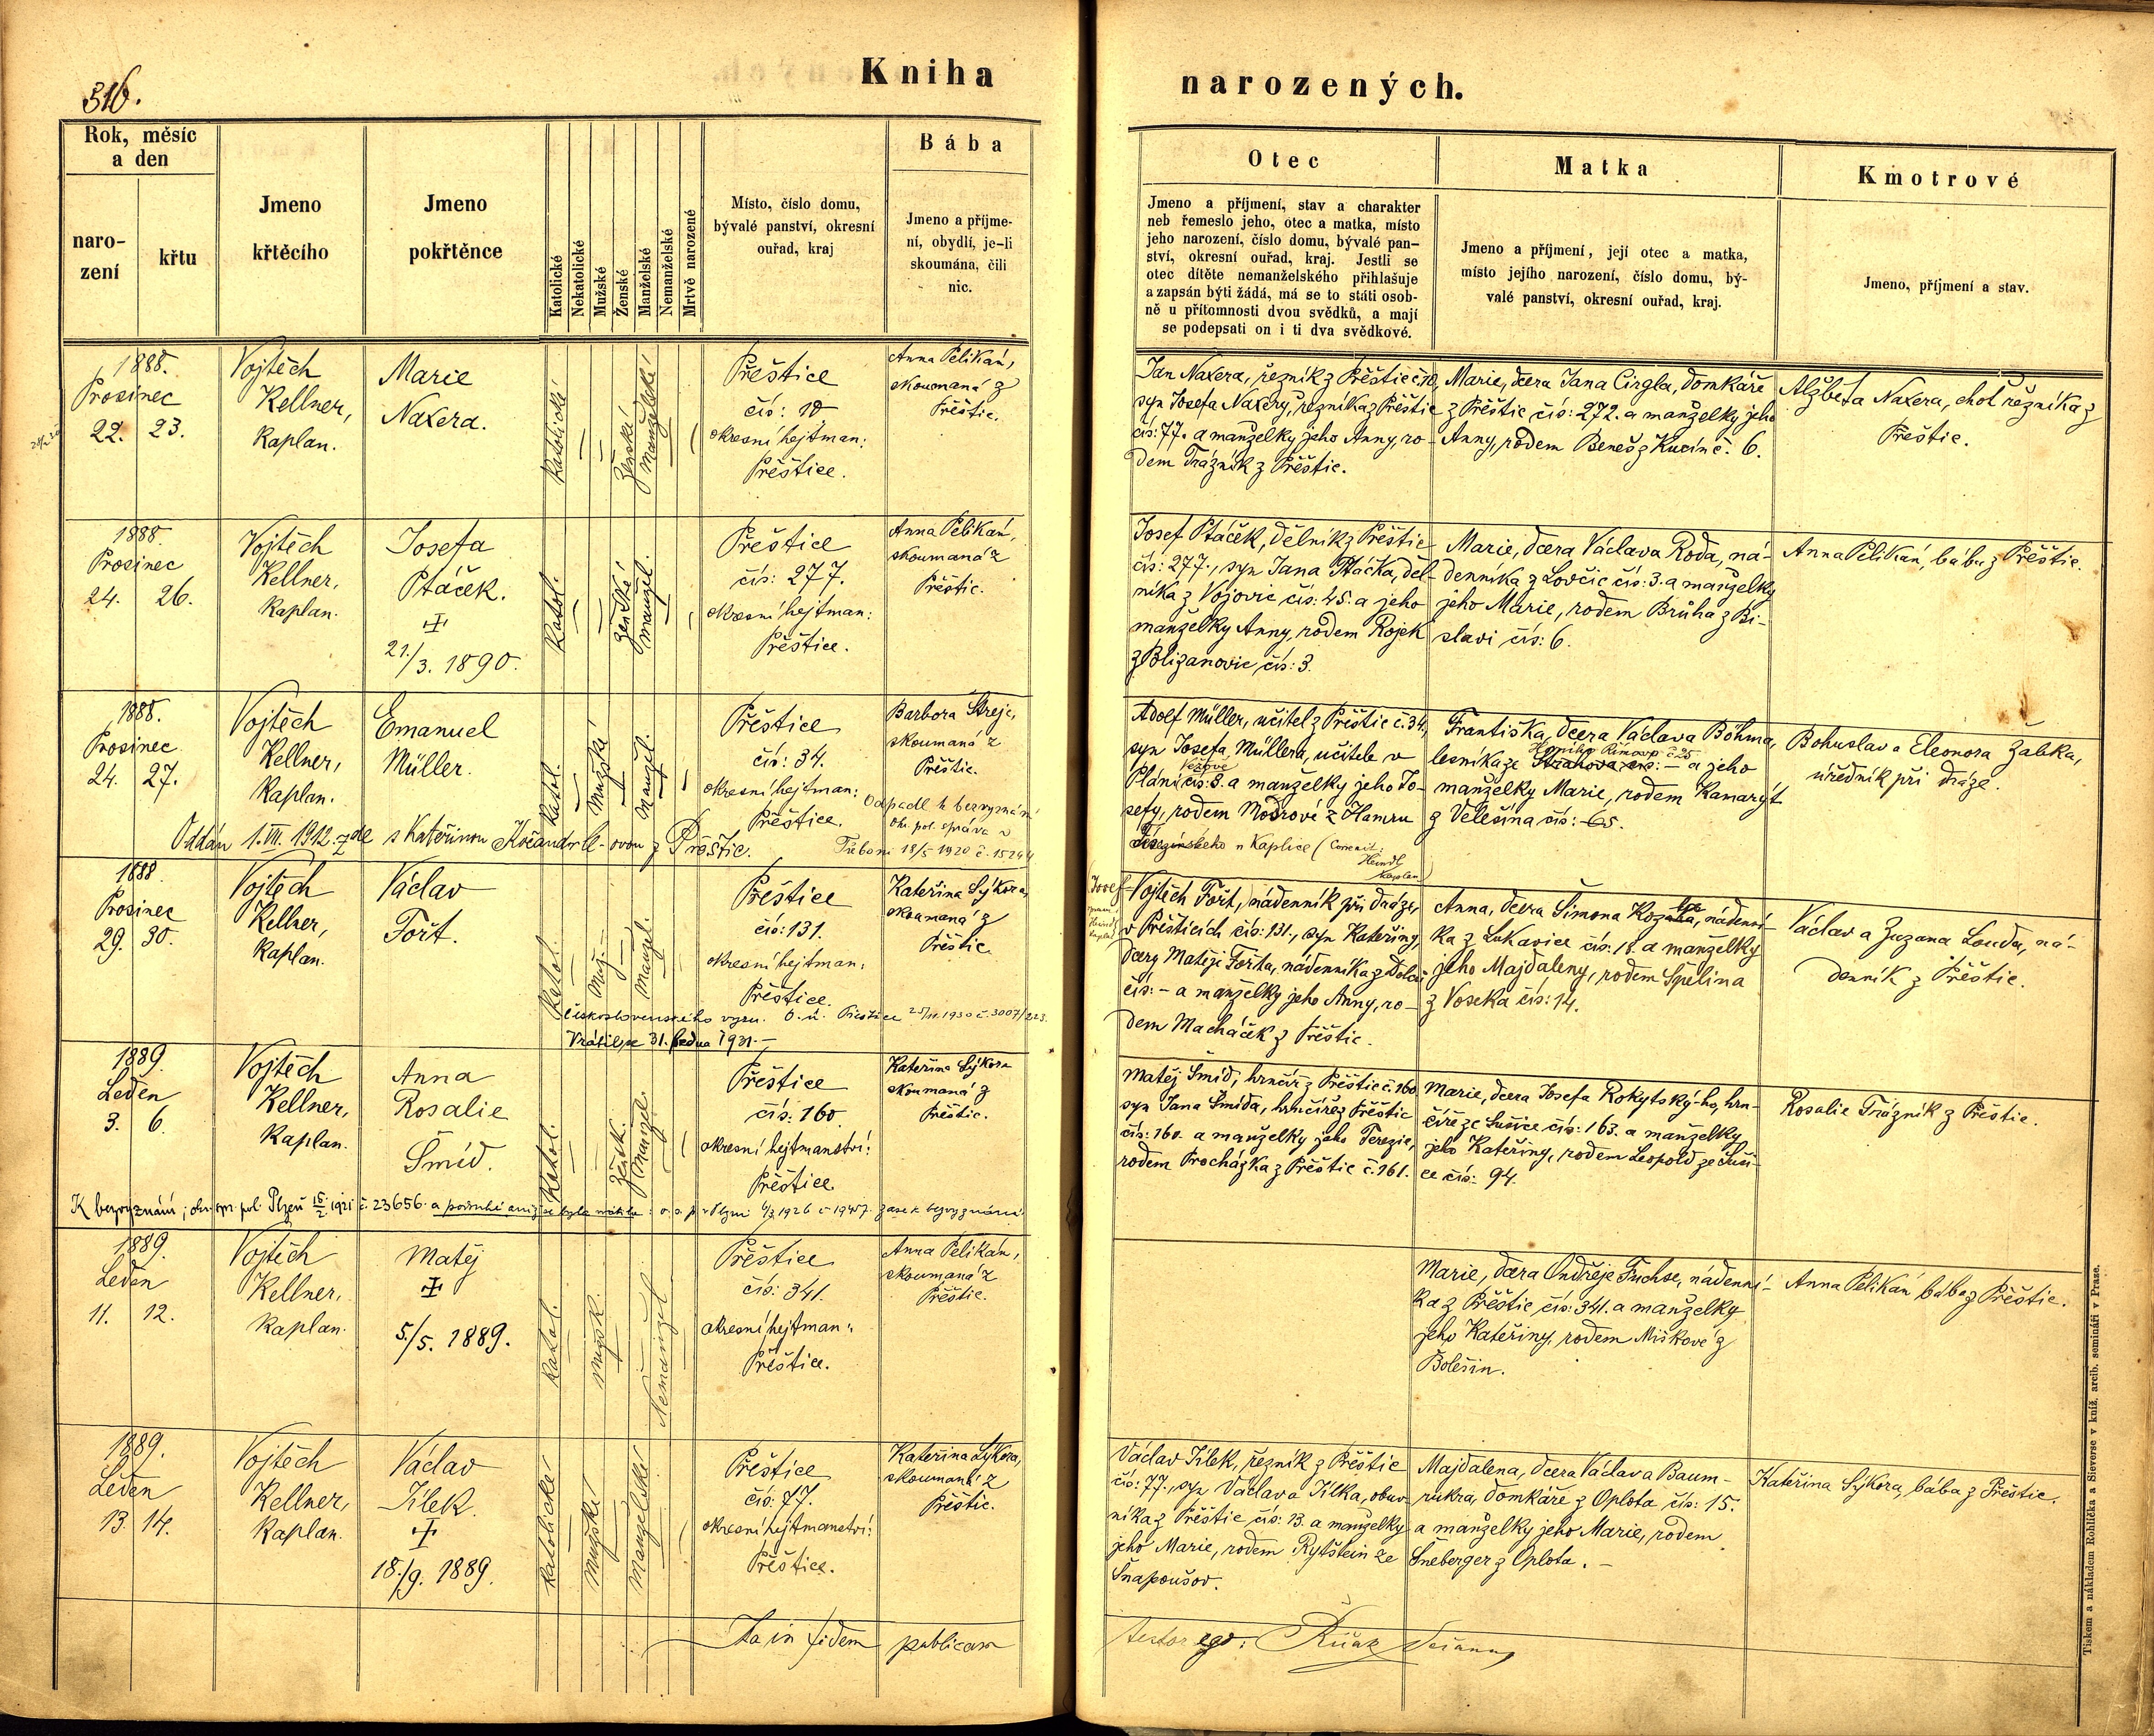 316.
Kniha
narozených.
Rok, měsíc
a den
naro-
zení
křtu
Jmeno
křtěcího
Jmeno
pokřtěnce
Katolické
Nekatolické
Mužské
Ženské
Manželské
Nemanželské
Mrtvě narozené
Místo, číslo domu,
bývalé panství, okresní
ouřad, kraj
Bába
Jmeno a příjme-
ní, obydlí, je-li
skoumána, čili
nic.
Otec
Jmeno a příjmení, stav a charakter
neb řemeslo jeho, otec a matka, místo
jeho narození, číslo domu, bývalé pan-
ství, okresní ouřad, kraj. Jestli se
otec dítěte nemanželského přihlašuje
a zapsán býti žádá, má se to státi osob-
ně u přítomnosti dvou svědků, a mají
se podepsati on i ti dva svědkové.
Matka
Jmeno a příjmení, její otec a matka,
místo jejího narození, číslo domu, bý-
valé panství, okresní ouřad, kraj.
Kmotrové
Jméno, příjmení a stav.
1888.
Prosinec
22. 23.
Vojtěch
Kellner,
kaplan.
Marie
Naxera.
Katolické
Ženské
Manželské
Přeštice
čís: 10
okresní hejtman:
Přeštice.
Anna Pelikán,
skoumaná z
Přeštic.
Jan Naxera, řezník z Přeštic č. 10,
syn Josefa Naxery, řezníka z Přeštic
čís: 77. a manželky jeho Anny, ro-
dem Trázník z Přeštic.
Marie, dcera Jana Cirgla, domkáře
z Přeštic čís: 272. a manželky jeho
Anny, rodem Beneš z Kucín č. 6.
Alžběta Naxera, choť řezníka z
Přeštic.
1888.
Prosinec
24. 26.
Vojtěch
Kellner,
kaplan.
Josefa
Ptáček.
21./3. 1890.
Katol.
Ženské
manžel.
Přeštice
čís: 277.
okresní hejtman:
Přeštice.
Anna Pelikán,
skoumaná z
Přeštic.
Josef Ptáček, dělník z Přeštic
čís: 277., syn Jana Ptáčka, děl-
níka z Vojovic čís: 45. a jeho
manželky Anny, rodem Rojek
z Bližanovic čís: 3.
Marie, dcera Václava Roda, ná-
denníka z Lovčic čís: 3. a manželky
jeho Marie, rodem Brůha z Bi-
slavi čís: 6.
Anna Pelikán, bába z Přeštic.
1888.
Prosinec
24. 27.
Vojtěch
Kellner,
kaplan.
Emanuel
Müller.
Katol.
Mužské
Manžel.
Přeštice
čís: 34.
okresní hejtman:
Přeštice.
Barbora Strejc,
skoumaná z
Přeštic.
Odpadl k bezvyznání
Ok. pol. správa v
Třeboni 18/5 1920 č. 15244
Oddán 1. VII. 1912. zde s Kateřinou z Přeštic.
Adolf Müller, učitel z Přeštic č. 34,
syn Josefa Müllera, učitele v
Pláni čís: 8. a manželky jeho Jo-
sefy, rodem Modrové z Hamru
u Kaplice (Correxit:
Heindl
kaplan)
Františka, dcera Václava Böhma,
Horního Římova č. 25
lesníka ze Strahova čís: - a jeho
manželky Marie, rodem Kanarýt
z Velešína čís: 65.
Bohuslav a Eleonora Žabka,
úředník při dráze.
1888
Prosinec
29. 30.
Vojtěch
Kellner,
kaplan.
Václav
Fořt.
Katol.
Muž.
manžel.
Přeštice
čís: 131.
okresní hejtman:
Přeštice.
Kateřina Sýkora,
skoumaná z
Přeštic.
československého vyzn. O. ú. Přeštice 25/11. 1930 č. 3007/223.
Vrátil se 31. ledna 1931. -
Josef
Vojtěch Fořt, nádenník při dráze,
v Přešticích čís: 131., syn Kateřiny,
dcery Matěje Fořta, nádenníka z Dolců
čís: - a manželky jeho Anny, ro-
dem Macháček z Přeštic.
Anna, dcera Šimona, nádenní-
ka z Lukavice čís: 11. a manželky
jeho Majdaleny, rodem Špelina
z Voseka čís: 14.
Václav a Zuzana Louda, ná-
denník z Přeštic.
1889.
Leden
3. 6.
Vojtěch
Kellner,
kaplan.
Anna
Rosalie
Šmíd.
Katol.
Žensk.
manžel.
Přeštice
čís: 160.
okresní hejtmanství:
Přeštice.
Kateřina Sýkora
skoumaná z
Přeštic.
K bezvyznání; okr. spr. pol. Plzeň 15/2 1921 č. 23656. a podruhé, aniž se byla vrátila: o. s. p. v Plzni 6/3 1926 č. 19457. zase k bezvyznání.
Matěj Šmíd, hrnčíř z Přeštic č. 160
syn Jana Šmída, hrnčíře z Přeštic
čís: 160. a manželky jeho Terezie,
rodem Procházka z Přeštic č. 161.
Marie, dcera Josefa Rokytský-ho, hrn-
číře ze Sušice čís: 163. a manželky
jeho Kateřiny, rodem Leopold ze Suši-
ce čís: 94.
Rosalie Trázník z Přeštic.
1889.
Leden
11. 12.
Vojtěch
Kellner,
kaplan.
Matěj
5./5. 1889.
Katol.
mužsk.
Nemanžel
Přeštice
čís: 341.
okresní hejtman:
Přeštice.
Anna Pelikán,
skoumaná z
Přeštic.
Marie, dcera Ondřeje Fuchse, nádenní-
ka z Přeštic čís: 341. a manželky
jeho Kateřiny, rodem Miškové z
Bolešin.
Anna Pelikán bába z Přeštic.
1889.
Leden
13. 14.
Vojtěch
Kellner,
kaplan.
Václav
Jílek.
18./9. 1889.
Katolické
Mužské
Manželské
Přeštice
čís: 77.
okresní hejtmanství:
Přeštice.
Kateřina Sýkora,
skoumaná z
Přeštic.
Václav Jílek, řezník z Přeštic
čís: 77., syn Václava Jílka, obuv-
níka z Přeštic čís: 13. a manželky
jeho Marie, rodem Rytštein ze
Šnapoušov.
Majdalena, dcera Václava Baum-
rukra, domkáře z Oplota čís: 15.
a manželky jeho Marie, rodem
Šneberger z Oplota. -
Kateřina Sýkora, bába z Přeštic.
Ita in fidem publicam
testor ego:
Tiskem a nákladem Rohlíčka a Sieverse v kníž. arcib. semináři v Praze.